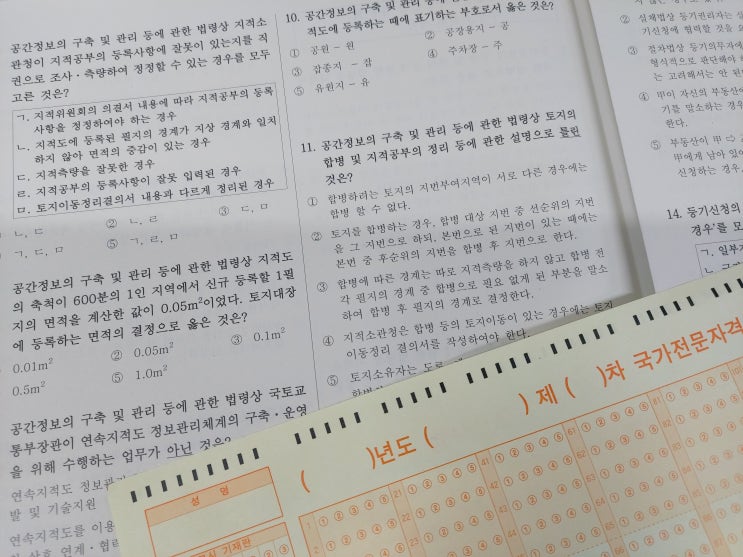 공간정보의 구축 및 관리 등에 관한 법령상 지적소
관청이 지적공부의 등록사항에 잘못이 있는지를 직
권으로 조사·측량하여 정정할 수 있는 경우를 모두
고른 것은?
ㄱ. 지적위원회의 의결서 내용에 따라 지적공부의 등록
사항을 정정하여야 하는 경우
ㄴ. 지적도에 등록된 필지의 경계가 지상 경계와 일치
하지 않아 면적의 증감이 있는 경우
ㄷ. 지적측량을 잘못한 경우
ㄹ. 지적공부의 등록사항이 잘못 입력된 경우
ㅁ. 토지이동정리결의서 내용과 다르게 정리된 경우
ㄴ, ㄷ ② ㄴ, ㄹ ③ ㄷ, ㅁ
ㄱ, ㄷ, ㅁ ⑤ ㄱ, ㄹ, ㅁ
공간정보의 구축 및 관리 등에 관한 법령상 지적도
의 축척이 600분의 1인 지역에서 신규 등록할 1필
지의 면적을 계산한 값이 0.05m²이었다. 토지대장
에 등록하는 면적의 결정으로 옳은 것은?
0.01m² ② 0.05m² ③ 0.1m²
0.5m² ⑤ 1.0m²
공간정보의 구축 및 관리 등에 관한 법령상 국토교
통부장관이 연속지적도 정보관리체계의 구축·운영
을 위해 수행하는 업무가 아닌 것은?
연속지적도 정보관
발 및 기술지원
연속지적도를 이용
상호 연계·협력
10. 공간정보의 구축 및 관리 등에 관한 법령상
적도에 등록하는 때에 표기하는 부호로서 옳은 것은?
① 공원 - 원 ② 공장용지 - 공
③ 잡종지 - 잡 ④ 주차장 - 주
⑤ 유원지 - 유
11. 공간정보의 구축 및 관리 등에 관한 법령상 토지의
합병 및 지적공부의 정리 등에 관한 설명으로 틀린
것은?
① 합병하려는 토지의 지번부여지역이 서로 다른 경우에는
합병 할 수 없다.
② 토지를 합병하는 경우, 합병 대상 지번 중 선순위의 지번
을 그 지번으로 하되, 본번으로 된 지번이 있는 때에는
본번 중 후순위의 지번을 합병 후 지번으로 한다.
③ 합병에 따른 경계는 따로 지적측량을 하지 않고 합병 전
각 필지의 경계 중 합병으로 필요 없게 된 부분을 말소
하여 합병 후 필지의 경계로 결정한다.
④ 지적소관청은 합병 등의 토지이동이 있는 경우에는 토지
이동정리 결의서를 작성하여야 한다.
⑤ 토지소유자는 도로
② 실체법상 등기권리자는
기신청에 협력할 것을
③ 절차법상 등기의무자에
형식적으로 판단해야
는 고려해서는 안 된
④ 甲이 자신의 부동산에
기를 말소하는 경우
한다.
⑤ 부동산이 甲 ⇨
甲에게 남아 있어
신청하는 경우,
14. 등기신청의
경우'를 모
ㄱ. 일부
( )년도 ( ) 제 ( )차 국가전문자격
성 명